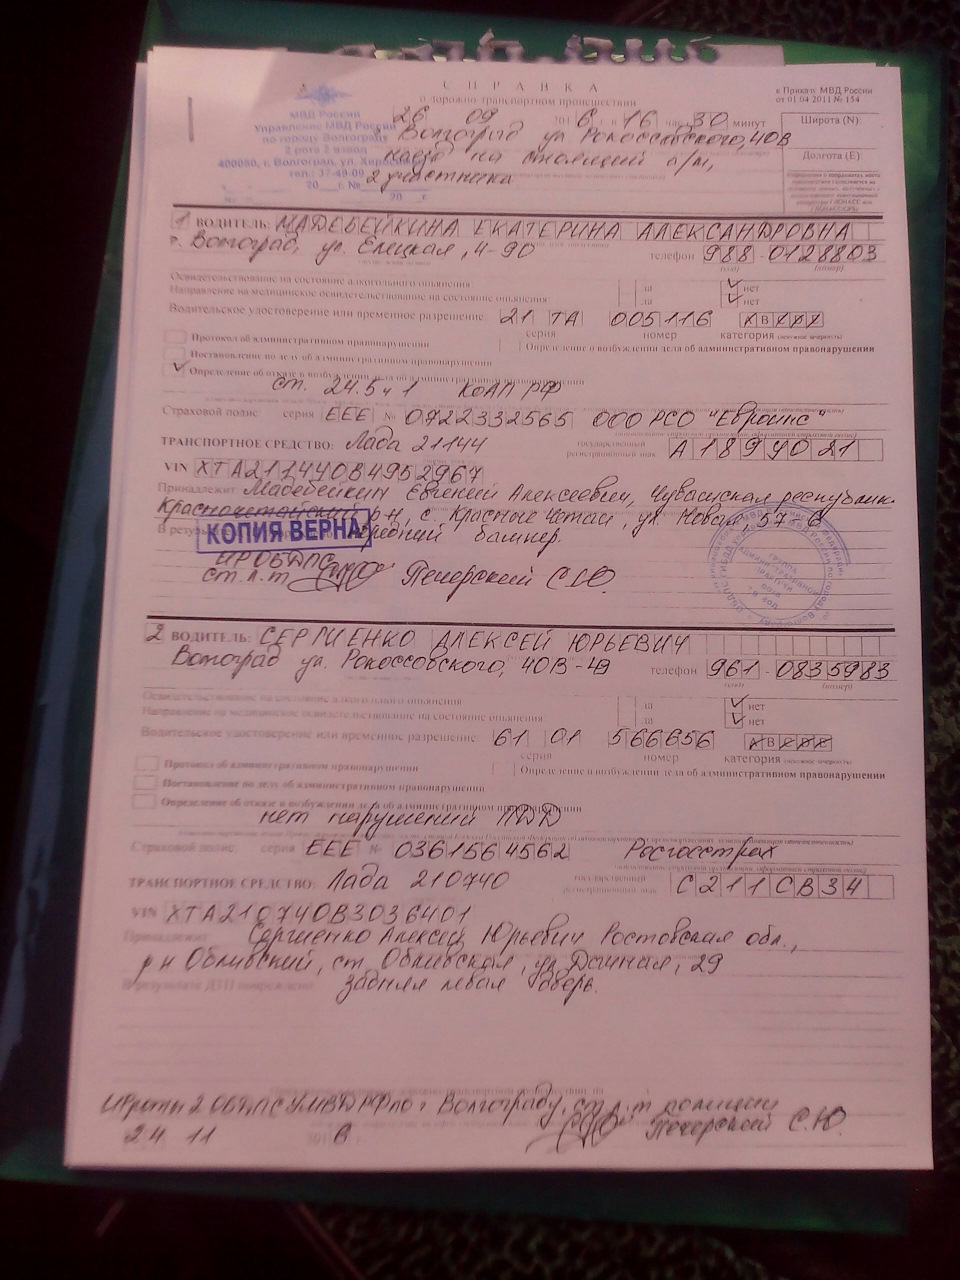 СПРАВКА
о дорожно-транспортном происшествии
к Приказу МВД России
от 01 04 2011 № 154
МВД России
Управление МВД России
по городу Волгограду
2 рота 2 взвод
400080, г. Волгоград, ул.
тел.: 37-49-09
20 г. №
26 09 201 6 г. в 16 час 30 минут
Волгоград ул Рокоссовского, 40В
наезд на стоящий а/м,
2 участника
Широта (N):
Долгота (E)
1 ВОДИТЕЛЬ: МАДЕБЕЙКИНА ЕКАТЕРИНА АЛЕКСАНДРОВНА
г. Волгоград, ул. Елецкая, 4-90 телефон 988 - 0128803
(код) (номер)
Освидетельствование на состояние алкогольного опьянения да нет
Направление на медицинское освидетельствование на состояние опьянения да нет
Водительское удостоверение или временное разрешение: 21 ТА 005116 АВСДЕ
серия номер категория (ненужное зачеркнуть)
Протокол об административном правонарушении Определение о возбуждении дела об административном правонарушении
Постановление по делу об административном правонарушении
Определение об отказе в возбуждении дела об административном правонарушении
ст. 24.5 ч 1 КоАП РФ
Страховой полис серия ЕЕЕ № 0722332565 ООО РСО "Евроинс"
ТРАНСПОРТНОЕ СРЕДСТВО: Лада 21144 государственный регистрационный знак А189УО21
VIN ХТА21144084952967
Принадлежит Мадебейкин Евгений Алексеевич, Чувашская республика
Красночетайский р-н, с. Красные Четаи, ул. Новая, 57
КОПИЯ ВЕРНА
передний бампер.
ИРОБДПС
ст. л-т Печерский С.Ю.
2 ВОДИТЕЛЬ: СЕРГИЕНКО АЛЕКСЕЙ ЮРЬЕВИЧ
Волгоград ул. Рокоссовского, 40В-49 телефон 961 - 0835983
(код) (номер)
Освидетельствование на состояние алкогольного опьянения да нет
Направление на медицинское освидетельствование на состояние опьянения да нет
Водительское удостоверение или временное разрешение: 61 01 566656 АВСДЕ
серия номер категория (ненужное зачеркнуть)
Протокол об административном правонарушении Определение о возбуждении дела об административном правонарушении
Постановление по делу об административном правонарушении
Определение об отказе в возбуждении дела об административном правонарушении
нет нарушений ПДД
Страховой полис: серия ЕЕЕ № 0361564562 Росгосстрах
ТРАНСПОРТНОЕ СРЕДСТВО: Лада 210740 государственный регистрационный знак С211СВ34
VIN ХТА210740В3036401
Принадлежит Сергиенко Алексей Юрьевич Ростовская обл.,
р-н Обливский, ст. Обливская, ул. Дачная, 29
В результате ДТП повреждено задняя левая дверь.
2 ОБДПС УМВД РФ по г Волгограду, ст. л-т полиции
24 11 201 6 г. Печерский С.Ю.